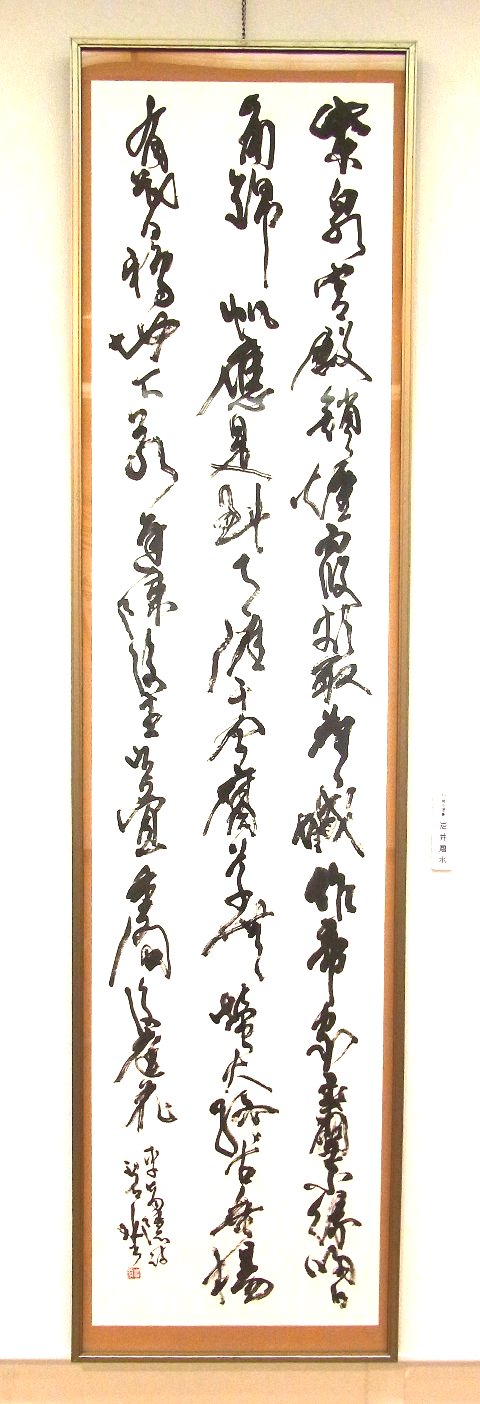 紫泉宮殿鎖煙霞欲取蕪城作帝家玉璽不緣歸日
角錦帆應是到天涯于今腐草無螢火終古垂楊
有暮鴉地下若逢陳後主豈宜重問後庭花
李商隠詩